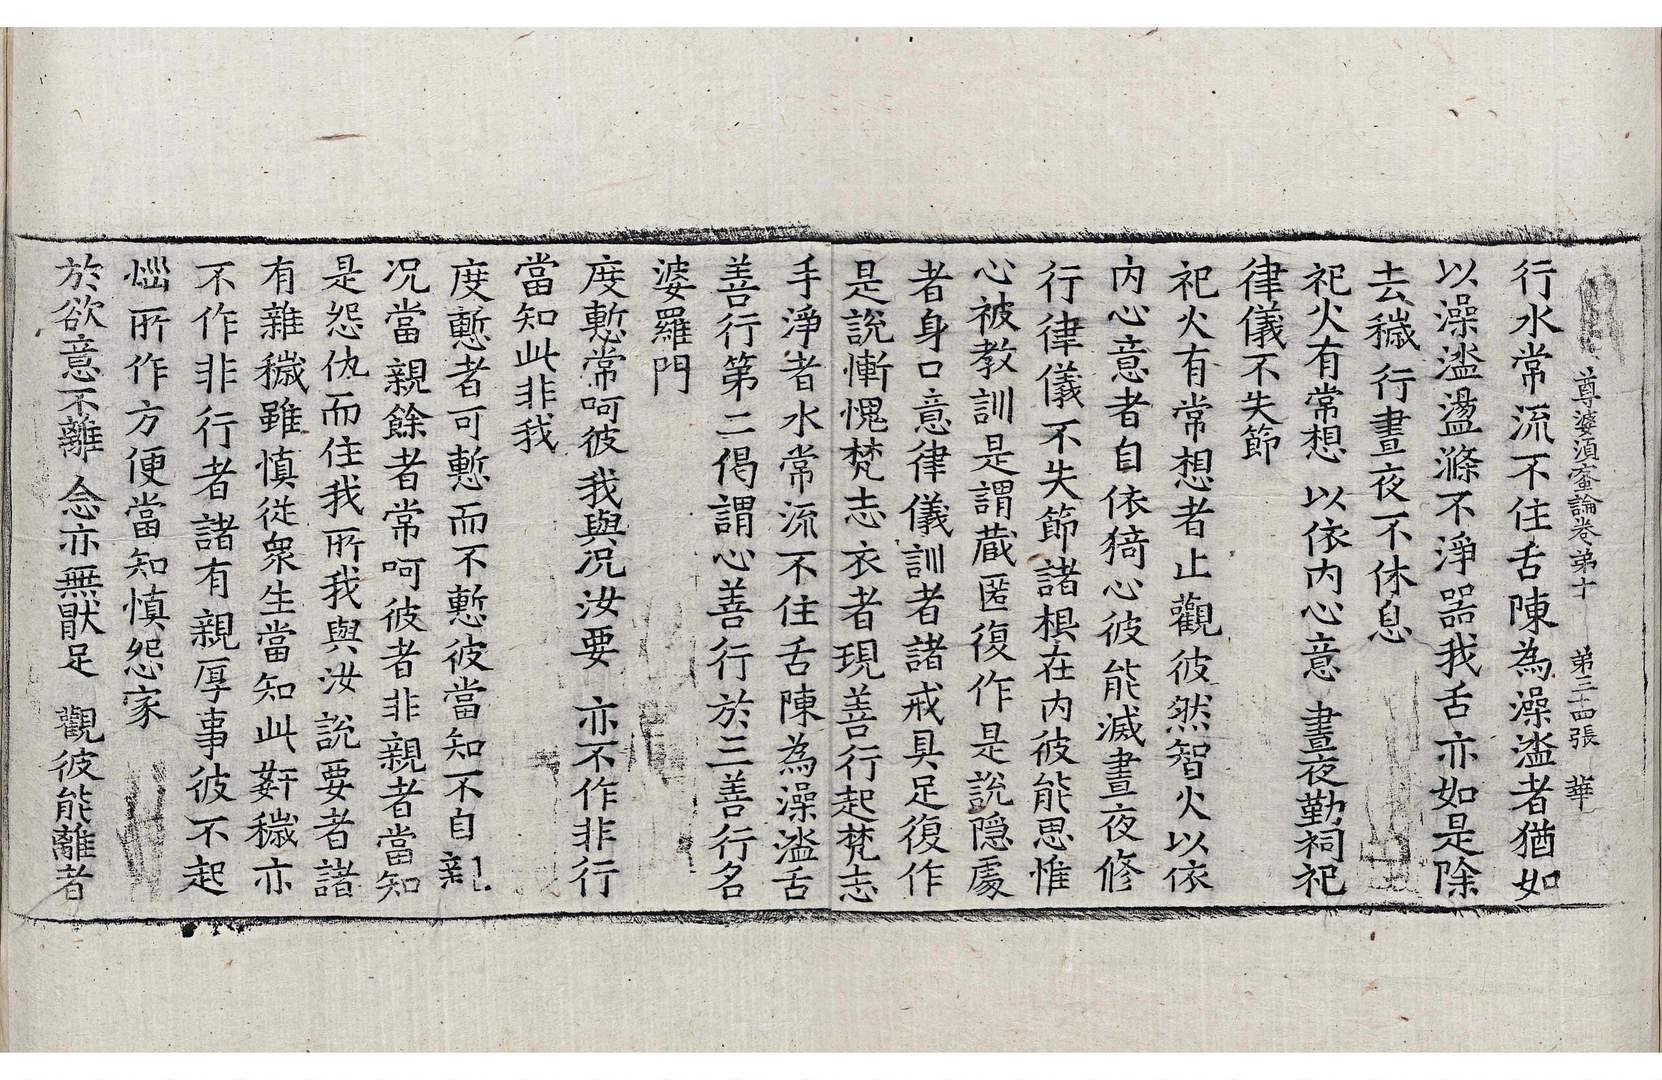 尊婆須蜜論卷第十 第三十四張 華
行水常流不住舌陳為澡盗者猶如
以澡盗盪滌不淨器我舌亦如是除
去穢行晝夜不休息
祀火有常想 以依内心意 晝夜勤祠祀
律儀不失節
祀火有常想者止觀彼然智火以依
内心意者自依猗心彼能滅晝夜修
行律儀不失節諸棖在内彼能思惟
心被教訓是謂蔵匿復作是説隠處
者身口意律儀訓者諸戒具足復作
是説慚愧梵志衣者現善行起梵志
手淨者水常流不住舌陳為澡盗舌
善行第二偈謂心善行於三善行名
婆羅門
度慙常呵彼 我與况汝要 亦不作非行
當知此非我
度慙者可慙而不慙彼當知不自親
况當親餘者常呵彼者非親者當知
是怨仇而住我所我與汝説要者諸
有雜穢雖慎從衆生當知此姧穢亦
不作非行者諸有親厚事彼不起
惱所作方便當知慎怨家
於欲意不離 念亦無猒足 觀彼能離者